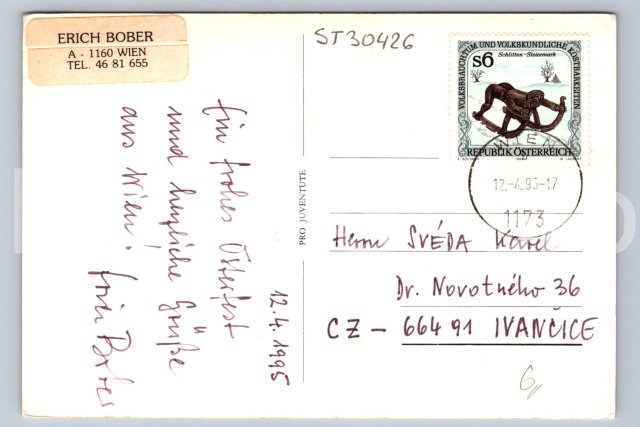 ERICH BOBER
A - 1160 WIEN
TEL. 46 81 655
ST30426
VOLKSBRAUCHTUM UND VOLKSKUNDLICHE KOSTBARKEITEN
S6
Schlitten - Steiermark
REPUBLIK ÖSTERREICH
WIEN
12.-4.95-17
1173
Ein frohes Osterfest
und herzliche Grüße
aus Wien.
Erich Bober
12.4.1995
PRO JUVENTUTE
Herrn SVÉDA Karel
Dr. Novotného 36
CZ - 66491 IVANČICE
6